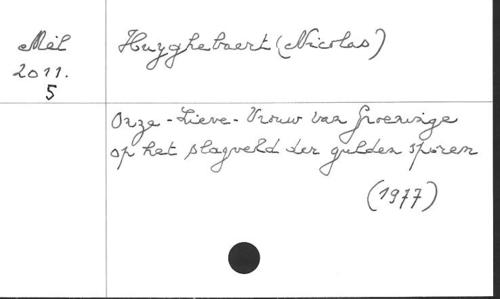 Mél Huyghebaert (Nicolas)
2011.
5
Onze-Lieve-Vrouw van Groeninge
op het slagveld der gulden sporen
(1977)